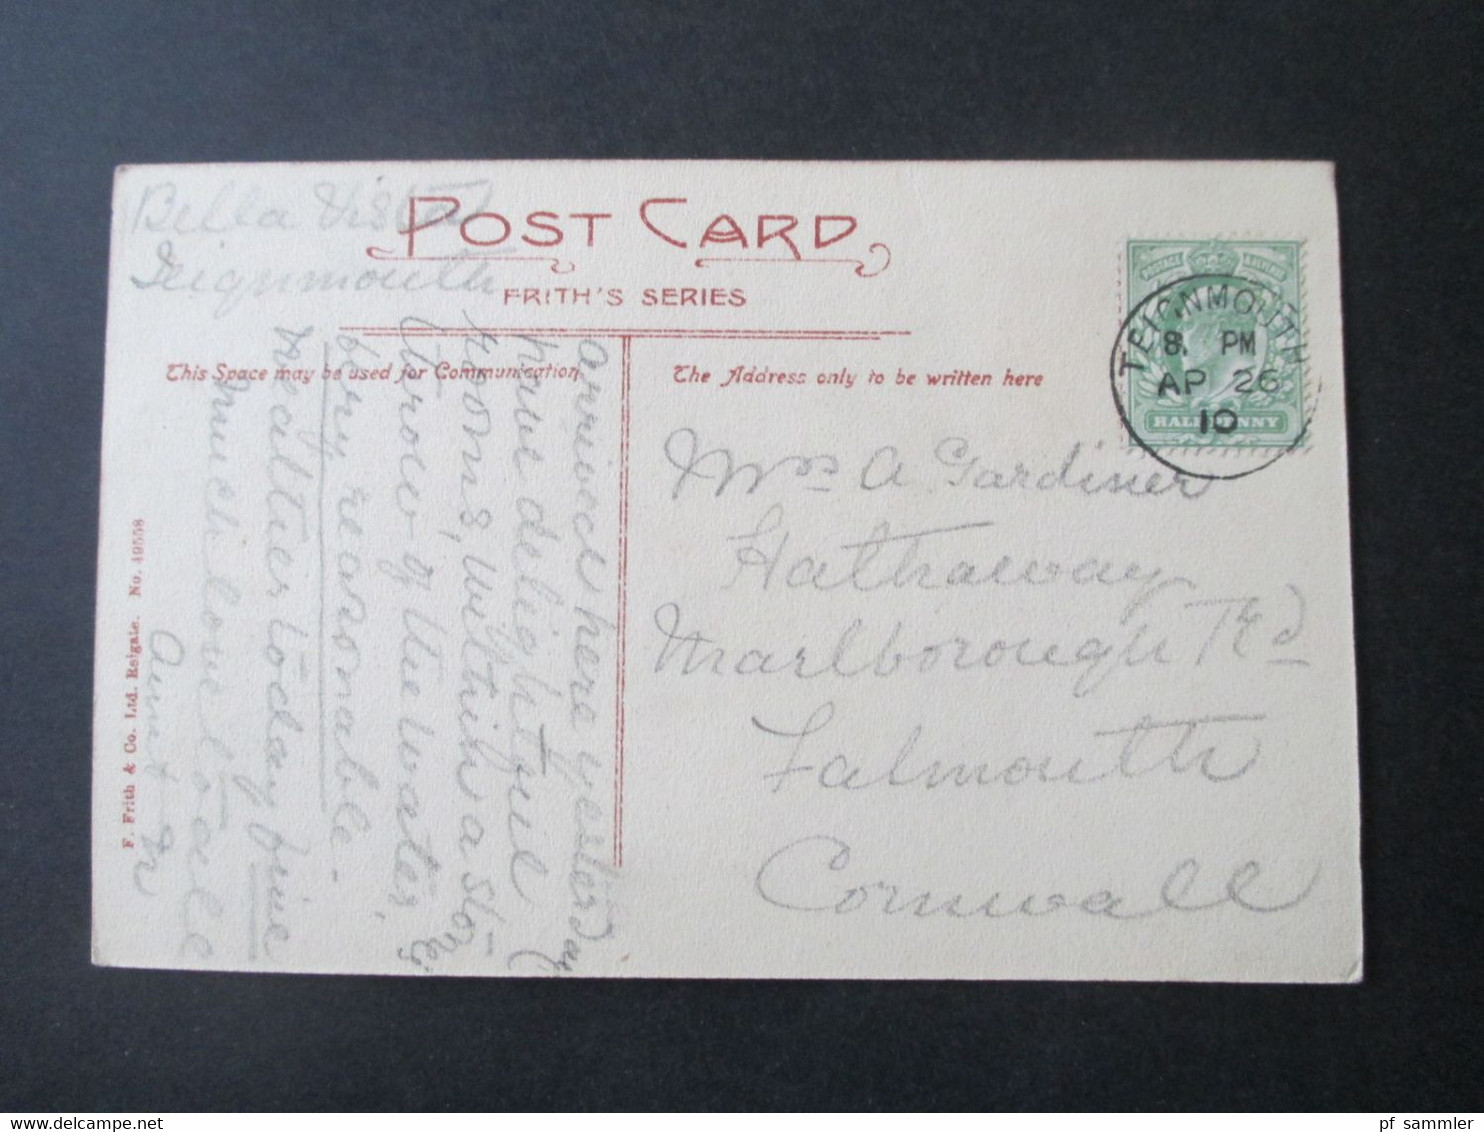 Bella Vista
Teignmouth
POST CARD
FRITH'S SERIES
This Space may be used for Communication
The Address only to be written here
arrived here yesterday
have delightful
rooms, within a ston
throw of the water, &
very reasonable.
weather today fine
much love to all
Aunt M
TEIGNMOUTH
8. PM
AP 26
10
POSTAGE REVENUE
HALFPENNY
Mrs A Gardiner
Hathaway
Marlborough Rd
Falmouth
Cornwall
F. Frith & Co. Ltd. Reigate. No. 49558
pf_sammler